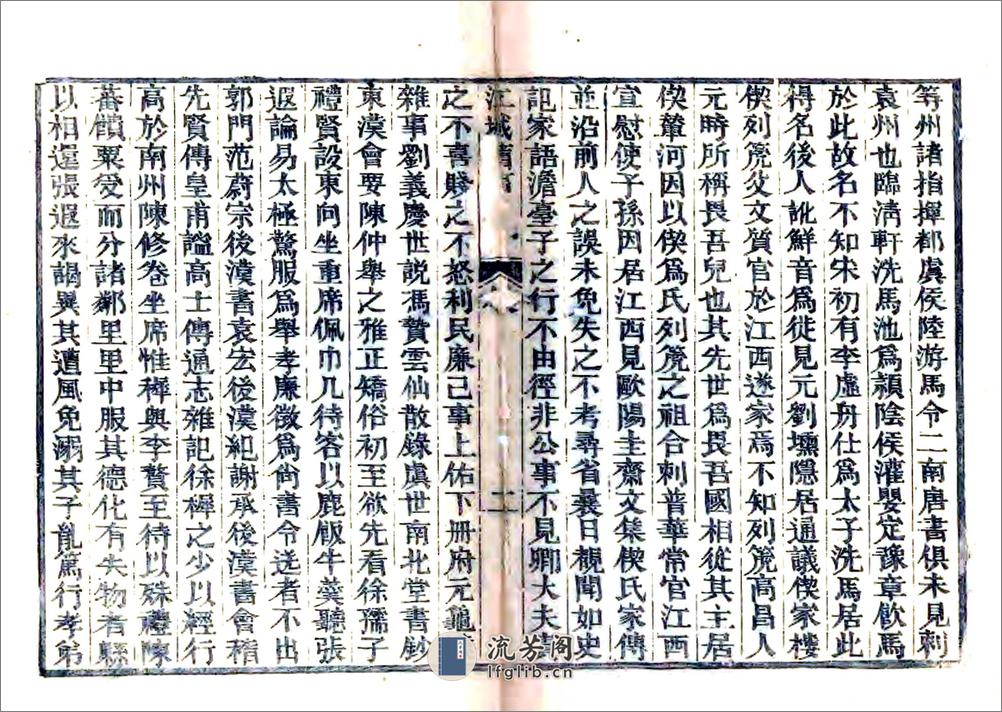 等州諸指揮都虞侯陸游馬令二南唐書俱未見刺
袁州也臨淸軒洗馬池爲潁陰侯灌嬰定豫章飮馬
於此故名不知宋初有李虛舟仕爲太子洗馬居此
得名後人訛鮮音爲徙見元劉壎隱居通議偰家樓
偰列箎父文質官於江西遂家焉不知列箎高昌人
元時所稱畏吾兒也其先世爲畏吾國相從其主居
偰輦河因以偰爲氏列箎之祖合刺普華常官江西
宣慰使子孫因居江西見歐陽圭齋文集偰氏家傳
並沿前人之誤未免失之不考尋省曩日觀聞如史
記家語澹臺子之行不由徑非公事不見卿大夫
江城 二
之不喜賤之不怒利民廉己事上佑下册府元龜
雜事劉義慶世說馮贄雲仙散錄虞世南北堂書鈔
東漢會要陳仲舉之雅正矯俗初至欲先看徐孺子
禮賢設東向坐重席佩巾几待客以鹿飯牛羹聽張
遐論易太極驚服爲舉孝廉徵爲尙書令送者不出
郭門范蔚宗後漢書袁宏後漢紀謝承後漢書會稽
先賢傳皇甫謐高士傳通志雜記徐穉之少以經行
高於南州陳修卷坐席惟穉與李贅至待以殊禮陳
蕃饋粟受而分諸鄰里里中服其德化有失物者縣
以相還張遐來謁異其遭風免溺其子胤篤行孝弟
流芳阁
lfglib.cn